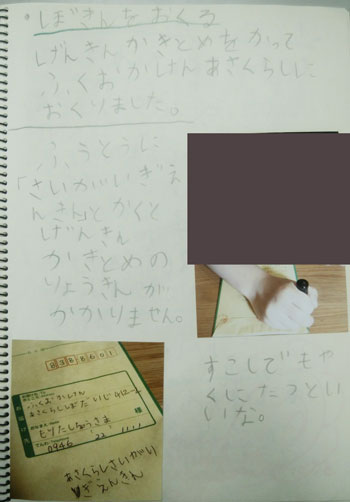 ぼきんをおくる
げんきんかきとめをかって
ふくおかけんあさくらしに
おくりました。
ふうとうに
「さいがいぎえ
んきん」とかくと
げんきん
かきとめの
りょうきんが
かかりません。
すこしでもや
くにたつとい
いな。
8388601
ふくおかけん
あさくらし
もりたしゅんすけ
様
0946
22
1111
あさくらしさいがい
ぎえんきん